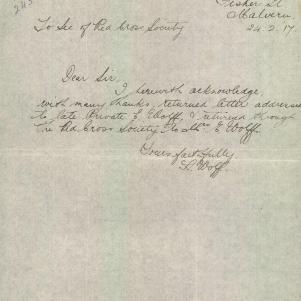 243
Fisher St
Malvern
24.2.17
To Sec of Red Cross Society
Dear Sir,
I herewith acknowledge,
with many thanks, returned letter addressed
to late Private E Wolff, & returned through
the Red Cross Society to Mrs E Wolff.
Yours faithfully
Wolff